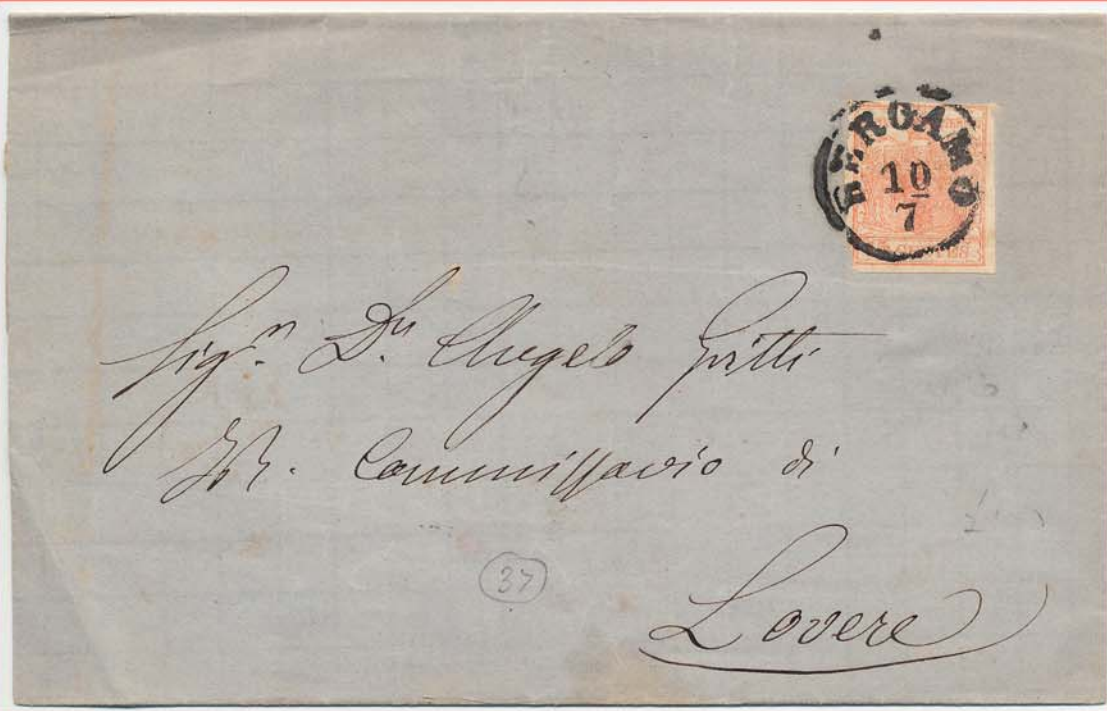 BERGAMO
10
7
Sig.r Dn Angelo Gritti
Commissario di
37
Lovere